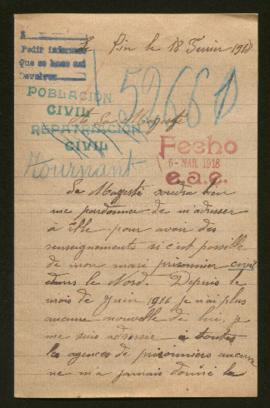 Pedir informes
Que se haga así
Le Pin le 18 Février 1918
52661
POBLACIÓN
CIVIL
REPATRIACIÓN
CIVIL
Tournant
A Sa Majesté
Fecho
6-MAR. 1918
Sa Majesté voudra bien
me pardonner de m'adresser
à Elle pour avoir des
renseignements si c'est possible
de mon mari prisonnier civil
dans le Nord. Depuis le
mois de Juin 1916 je n'ai plus
aucune nouvelle de lui, je
me suis adressée à toutes
les agences de prisonniers aucune
ne m'a jamais donné la